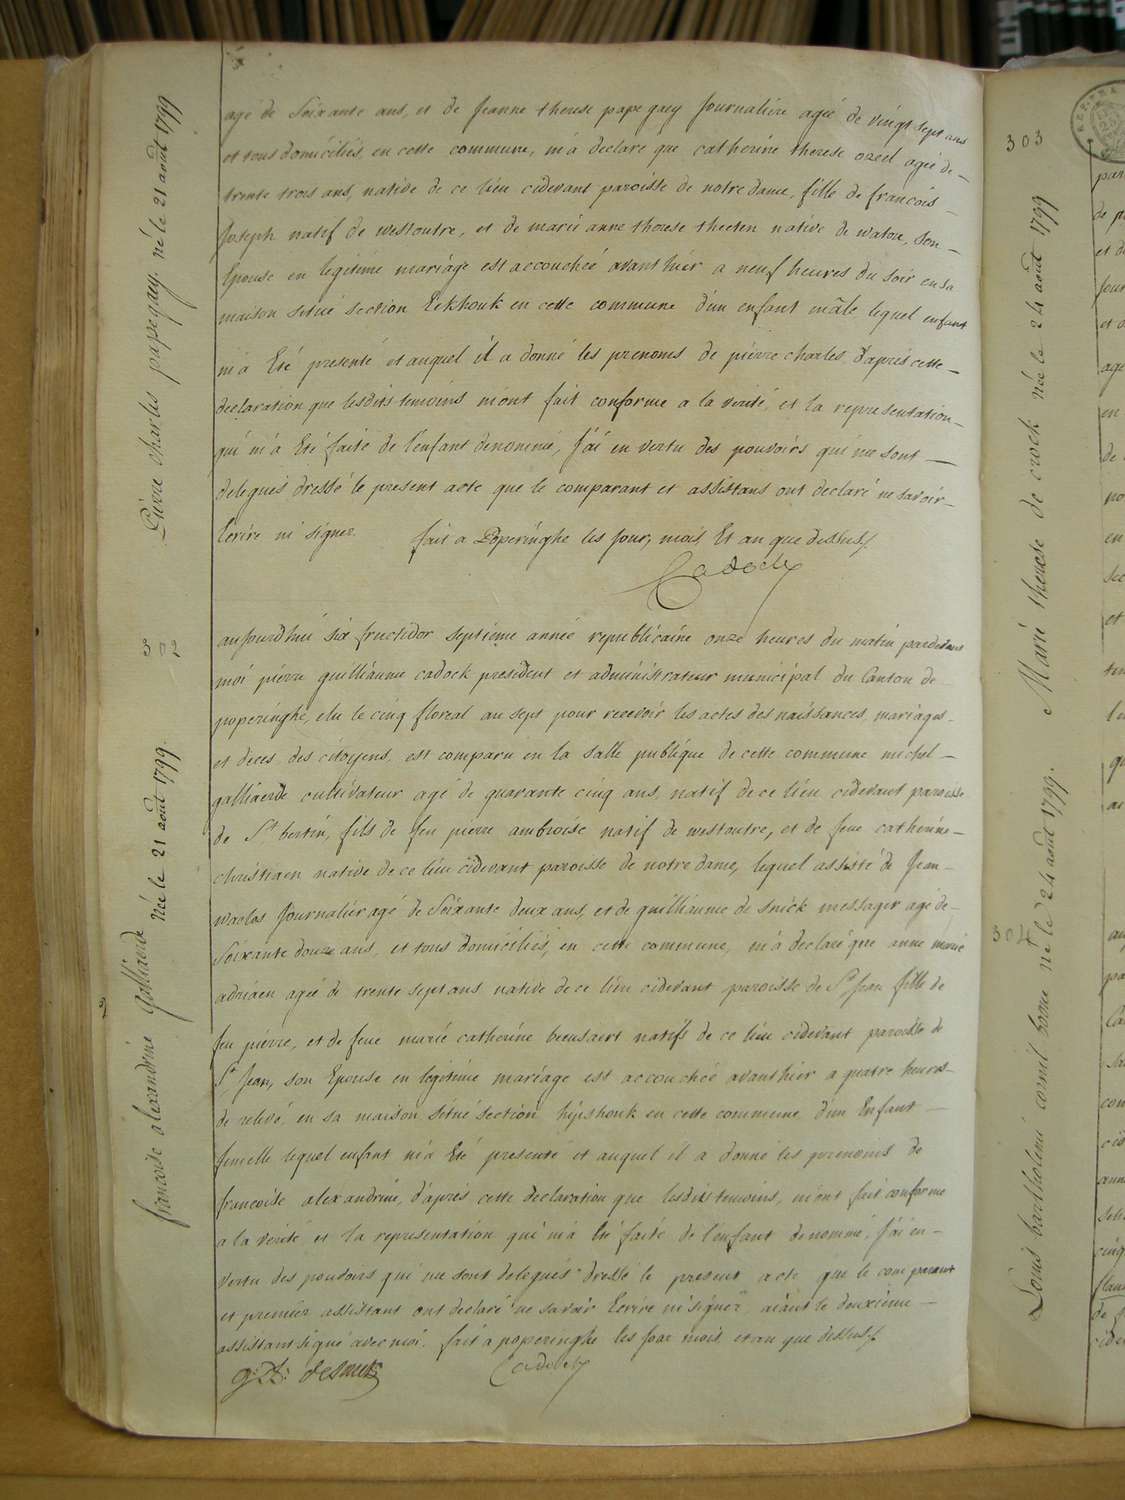 agé de Soixante ans, et de Jeanne therese papegaey Journaliére agée de vingt sept ans
et tous domiciliés, en cette commune, m'a declaré que catherine therese ozeel agée de
trente trois ans, native de ce lieu cidevant paroisse de notre dame, fille de francois
Joseph natif de westoutre, et de marie anne therese theeten native de watou, son
Epouse en legitime mariage est accouchée avant hier a neuf heures du soir en sa
maison situé section Eekhouk en cette commune d'un enfant mâle lequel enfant
m'a Eté presenté et auquel il a donné les prenoms de pierre charles, d'après cette
declaration que lesdits temoins m'ont fait conforme a la verité, et la representation
qui m'a Eté faite de l'enfant denommé, J'ai en vertu des pouvoirs qui me sont
delegués dressé le present acte que le comparant et assistans ont declaré ne savoir
Ecrire ni signer. fait a Poperinghe les Jour, mois Et an que dessus
Cadock
aujourdhui six fructidor septieme année republicaine onze heures du matin pardevant
moi pierre guilliaume cadock president et administrateur municipal du Canton de
poperinghe, elu le cinq floreal an sept pour recevoir les actes des naissances, mariages
et deces des citoyens, est comparu en la salle publique de cette commune michel
galliaerde cultivateur agé de quarante cinq ans, natif de ce lieu cidevant paroisse
de St bertin, fils de feu pierre ambroise natif de westoutre, et de feue catherine
christiaen native de ce lieu cidevant paroisse de notre dame, lequel assisté de Jean
waelos Journalier agé de Soixante deux ans, et de guilliaume de snick messager agé de
Soixante douze ans, et tous domiciliés, en cette commune, m'a declaré que anne marie
adriaen agée de trente sept ans native de ce lieu cidevant paroisse de St Jean fille de
feu pierre, et de feue marie catherine beusaert natifs de ce lieu cidevant paroisse de
St Jean, son Epouse en legitime mariage est accouchée avant hier a quatre heures
de relevé, en sa maison situé section hipshouk en cette commune d'un Enfant
femelle lequel enfant m'a Eté presenté et auquel il a donné les prenoms de
francoise alexandrine, d'aprés cette declaration que lesdits temoins, m'ont fait conforme
a la verité, et la representation qui m'a Eté faite de l'enfant denommé, J'ai en
vertu des pouvoirs qui me sont delegués dressé le present acte que le comparant
et premier assistant ont declaré ne savoir Ecrire ni signer, aiant le deuxieme
assistant signé avec moi. fait a poperinghe les Jour mois et an que dessus
Cadock
Pierre charles papegaey. né le 21 août 1799
francoise alexandrine Galliaerde née le 21 août 1799.
303
Marie therese de crock née le 24 août 1799
304
Louis bartholomé cornil boone né le 24 août 1799.